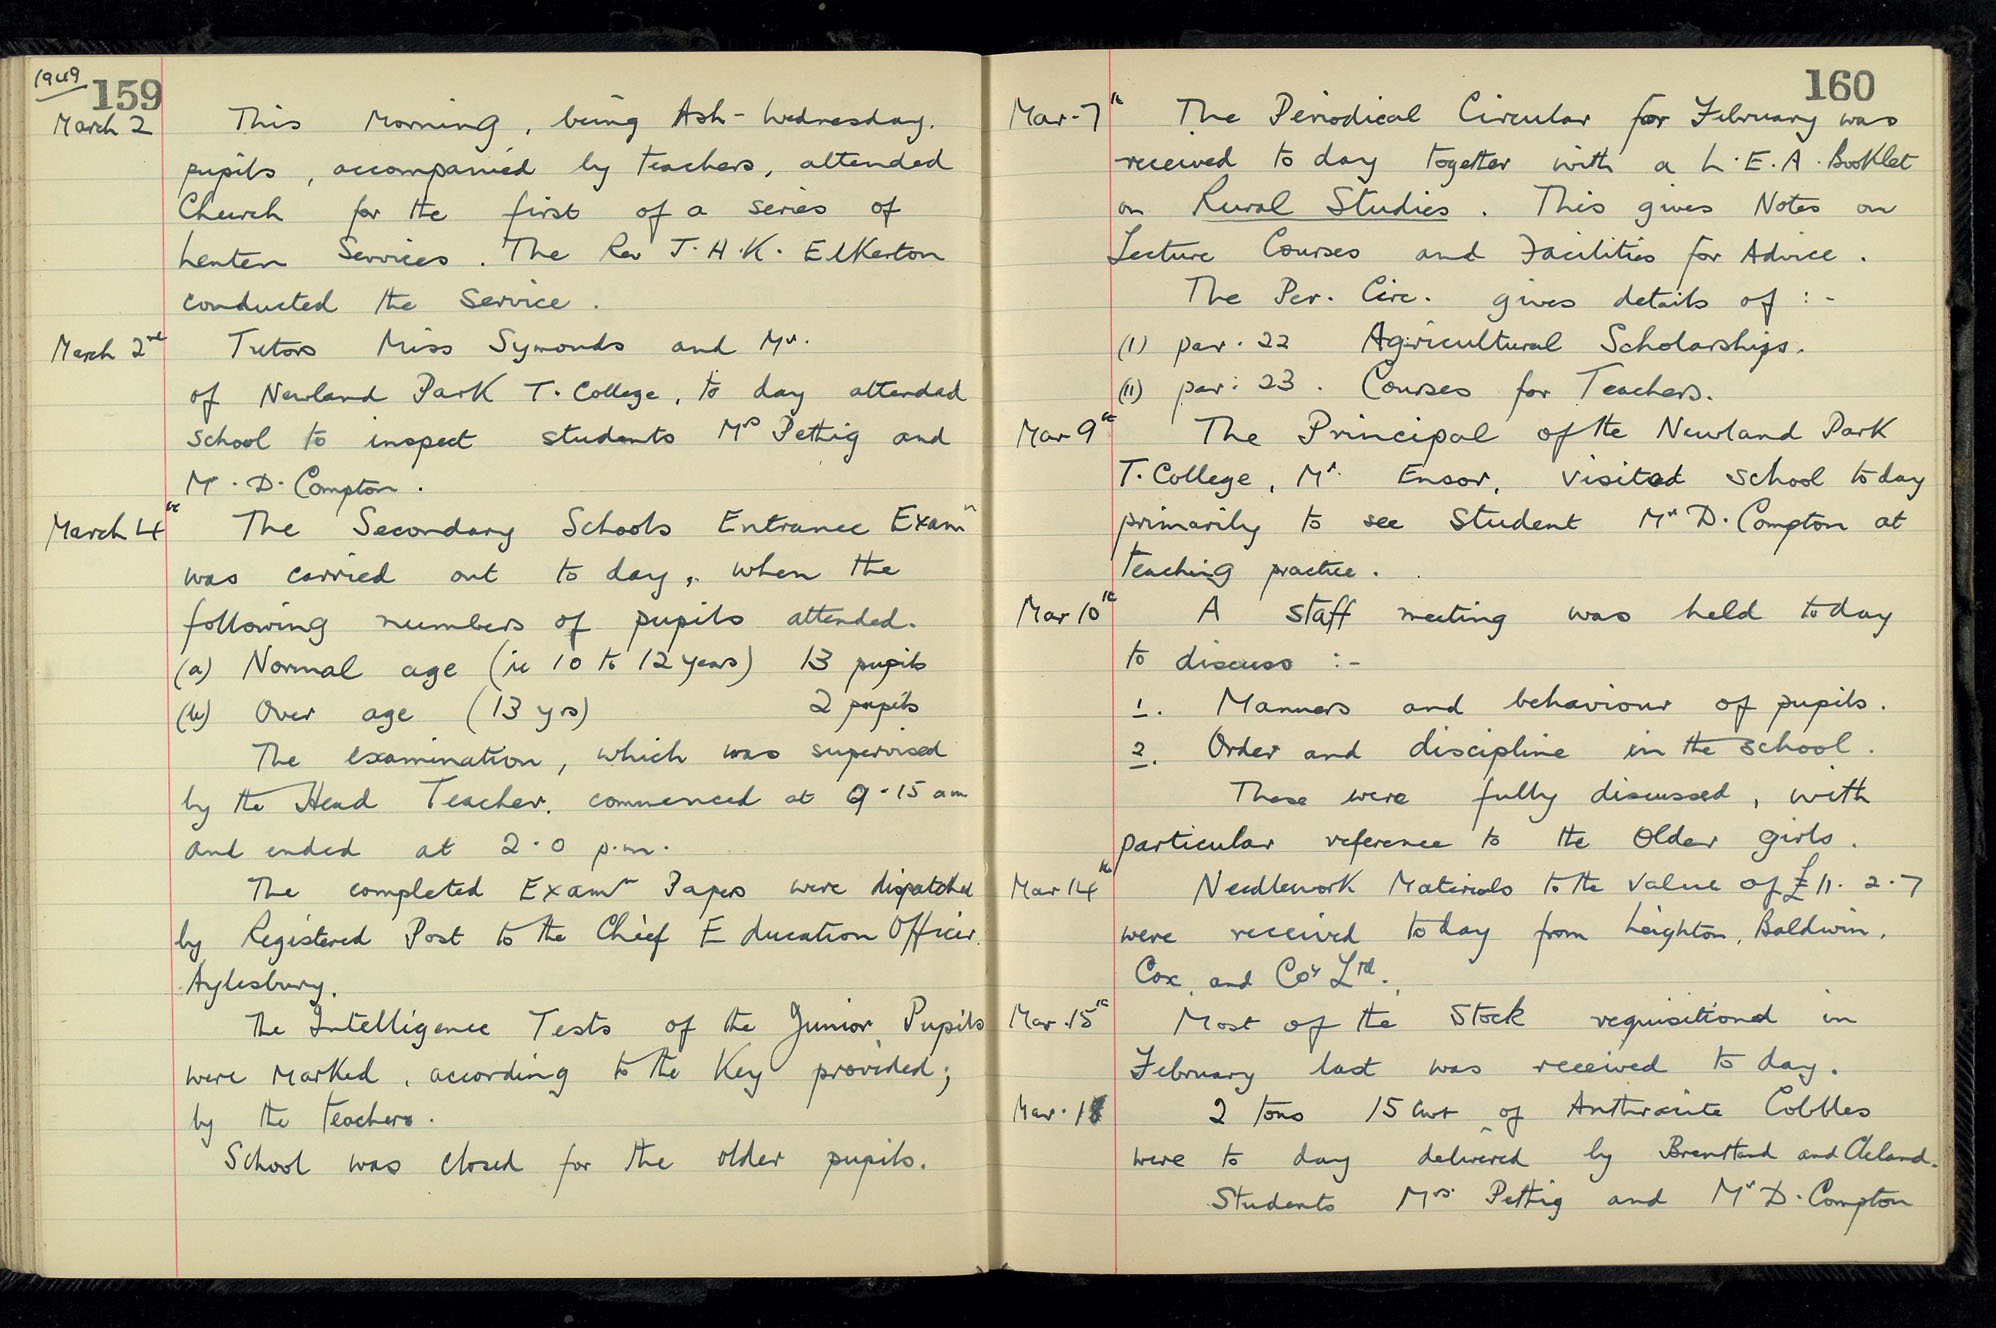 1949
159
March 2 This Morning, being Ash-Wednesday.
pupils, accompanied by teachers, attended
Church for the first of a series of
Lenten Services. The Rev J.H.K. Elkerton
conducted the Service.
March 2nd Tutors Miss Symonds and Mr.
of Newland Park T. College, to day attended
school to inspect students Mrs Pettig and
Mr. D. Compton.
March 4th The Secondary Schools Entrance Examn
was carried out to day, when the
following numbers of pupils attended.
(a) Normal age (ie 10 to 12 years) 13 pupils
(b) Over age (13 yrs) 2 pupils
The examination, which was supervised
by the Head Teacher, commenced at 9.15 am
and ended at 2.0 p.m.
The completed Examn Papers were dispatched
by Registered Post to the Chief Education Officer,
Aylesbury.
The Intelligence Tests of the Junior Pupils
were marked, according to the Key provided;
by the teachers.
School was closed for the older pupils.
160
Mar. 7th The Periodical Circular for February was
received to day together with a L.E.A. Booklet
on Rural Studies. This gives Notes on
Lecture Courses and Facilities for Advice.
The Per. Circ. gives details of :-
(I) par. 22 Agricultural Scholarships.
(II) par. 23. Courses for Teachers.
Mar 9th The Principal of the Newland Park
T. College, Mr. Ensor, visited school to day
primarily to see Student Mr D. Compton at
teaching practice.
Mar 10th A staff meeting was held to day
to discuss :-
1. Manners and behaviour of pupils.
2. Order and discipline in the school.
These were fully discussed, with
particular reference to the older girls.
Mar 14th Needlework Materials to the Value of £11. 2. 7
were received to day from Leighton, Baldwin,
Cox, and Coy Ltd.
Mar. 15th Most of the Stock requisitioned in
February last was received to day.
Mar. 18 2 tons 15 cwt of Anthracite Cobbles
were to day delivered by and Cleland.
Students Mrs. Pettig and Mr D. Compton